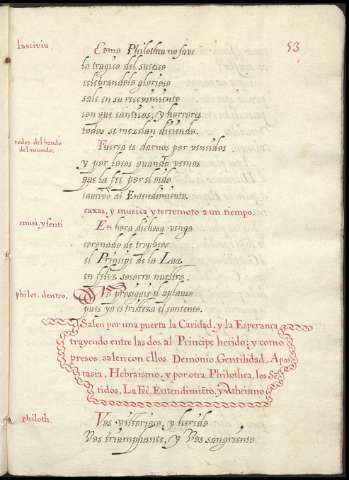 53
lascivia. Como Philothea no save
lo tragico del suceso
celebrandolo glorioso
sale en su recevimiento
con que canticos, y horrores
todos se mezclan diciendo.
todos del bando
del mundo. Fuerça es darnos por vencidos
y por locos quando vemos
que la fee por el oido
cautivó al Entendimiento.
caxas, y musica y terremoto a un tiempo.
musi. y senti En hora dichosa venga
coronado de tropheos
el Principe de la Luz
en feliz socorro nuestro.
philot. dentro. No prosigais el aplauso
pues ya es tristeza el contento.
Salen por una puerta la Caridad, y la Esperança
trayendo entre las dos al Principe herido; y como
presos salen con ellos Demonio, Gentilidad, Apos
thasia, Hebraismo, y por otra Philothea, los Sen
tidos, La Fee, Entendimiento, y Atheismo
philoth. Vos victorioso, y herido
Vos triumphante, y Vos sangriento